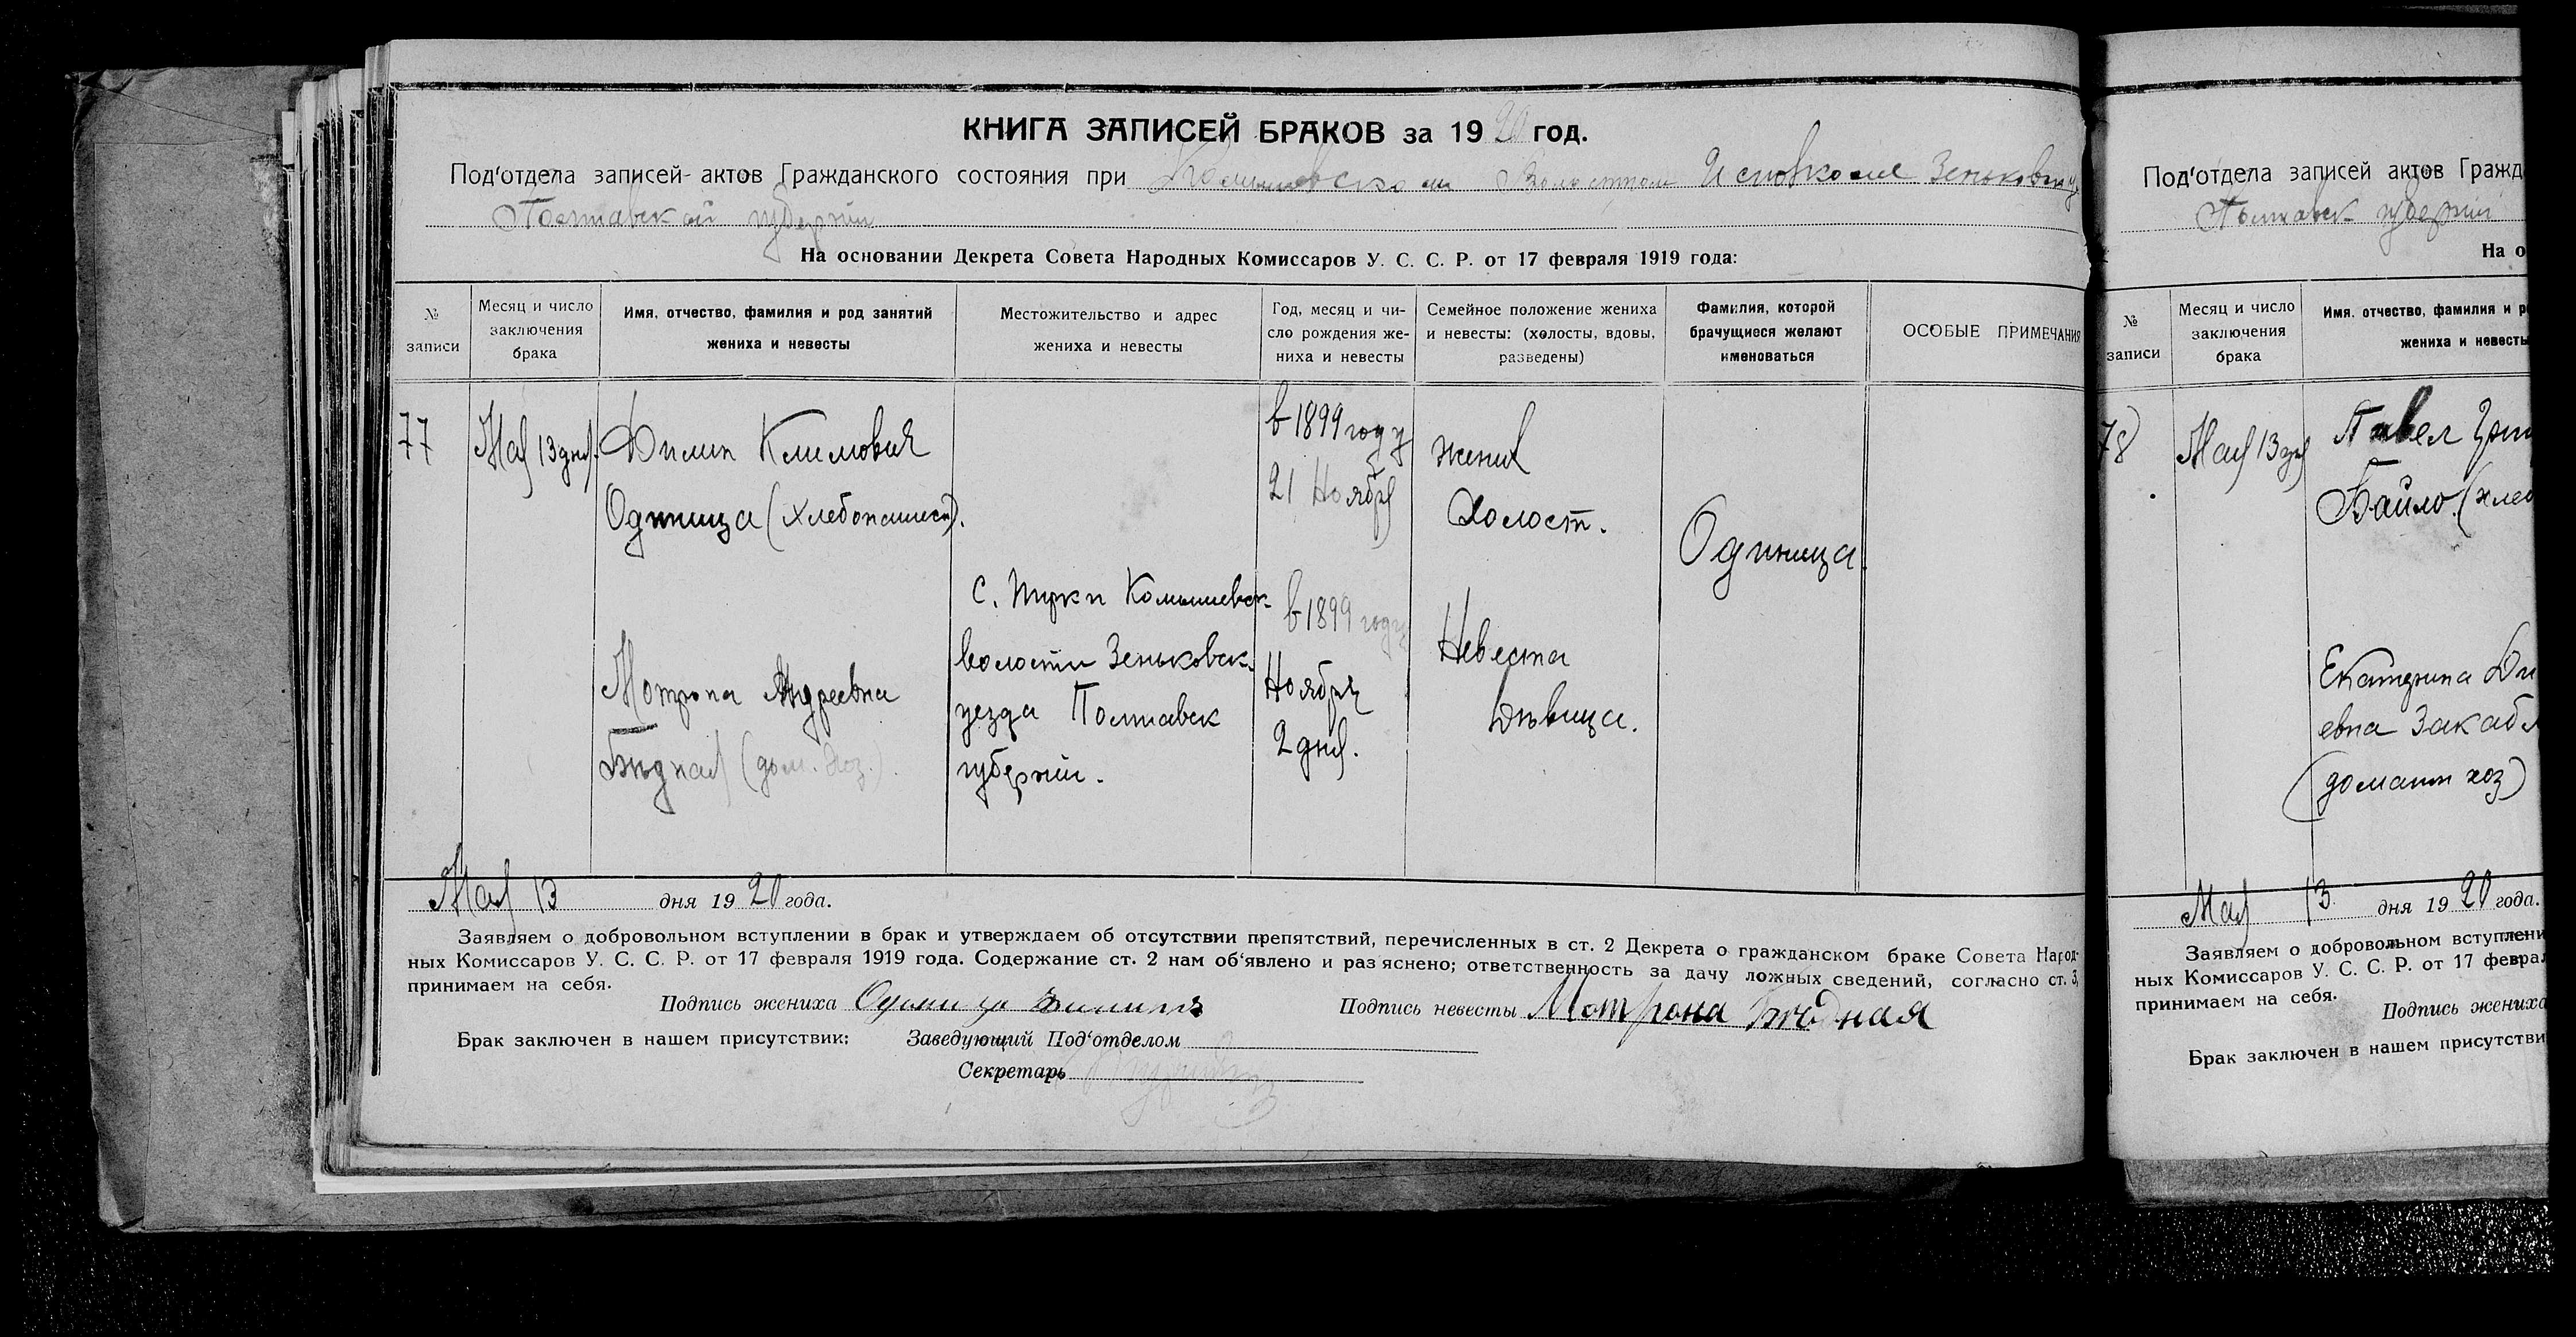 КНИГА ЗАПИСЕЙ БРАКОВ за 1920 год.
Под'отдела записей актов Гражданского состояния при Комышевском Волостном Исповкоме Зеньковск. у.
Полтавской губернии
На основании Декрета Совета Народных Комиссаров У. С. С. Р. от 17 февраля 1919 года:
№ записи
Месяц и число заключения брака
Имя, отчество, фамилия и род занятий жениха и невесты
Местожительство и адрес жениха и невесты
Год, месяц и число рождения жениха и невесты
Семейное положение жениха и невесты: (холосты, вдовы, разведены)
Фамилия, которой брачущиеся желают именоваться
ОСОБЫЕ ПРИМЕЧАНИЯ
77
Мая 13 дня.
Филип Климович
Одиница (хлебопашец).
Мотрона Андреевна
Бѣдная (дом. хоз.).
с. Комышевск.
волости Зеньковск.
уезда Полтавск
губернии.
в 1899 году
21 Ноября
в 1899 году
Ноября
2 дня.
жених
Холост.
Невеста
Дѣвица.
Одиница.
Мая 13 дня 1920 года.
Заявляем о добровольном вступлении в брак и утверждаем об отсутствии препятствий, перечисленных в ст. 2 Декрета о гражданском браке Совета Народ-
ных Комиссаров У. С. С. Р. от 17 февраля 1919 года. Содержание ст. 2 нам об'явлено и раз яснено; ответственность за дачу ложных сведений, согласно ст. 3,
принимаем на себя.
Подпись жениха Одиница Подпись невесты Мотрона Бѣдная
Брак заключен в нашем присутствии: Заведующий Под'отделом
Секретарь
Под'отдела записей актов Гражд
Полтавск губернии
На о
№ записи
Месяц и число заключения брака
Имя, отчество, фамилия и р
жениха и невесты
78
Мая 13 дня
Павел Григ
Байло (хлеб
Екатерина
евна Закабл
(домашн хоз)
Мая 13 дня 1920 года.
Заявляем о добровольном вступлени
ных Комиссаров У. С. С. Р. от 17 феврал
принимаем на себя.
Подпись жениха
Брак заключен в нашем присутстви